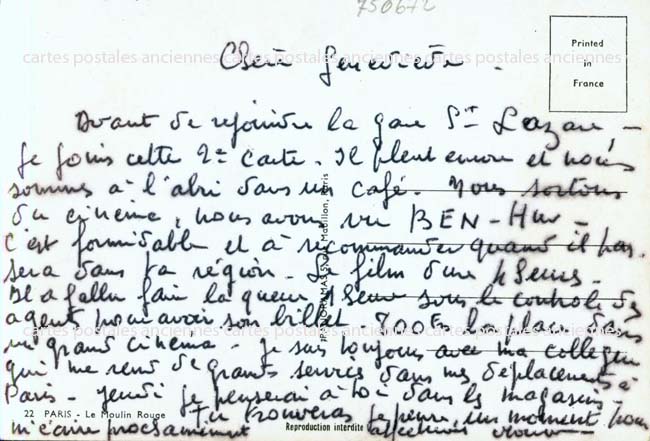 750672
Printed
in
France
cartes postales anciennes cartes postales anciennes cartes postales anciennes
Chère Geneviève.
Avant de rejoindre la gare St Lazare -
Je joins cette 2e carte. Il pleut encore et nous
sommes à l'abri dans un café. Nous sortons
du cinéma, nous avons vu BEN-Hur -
C'est formidable et à recommander quand il pas-
sera dans ta région. Le film dure 4 heures.
Il a fallu faire la queue 1 heure sous le contrôle des
agents pour avoir son billet - la place dans
cartes postales anciennes cartes postales anciennes cartes postales anciennes
un grand cinéma - Je suis toujours avec ma collègue
qui me rend de grands services dans mes déplacements à
Paris - Jeudi je penserai à toi dans le magasin -
22 PARIS - Le Moulin Rouge
Tu trouveras je pense un moment pour
m'écrire prochainement
Reproduction interdite